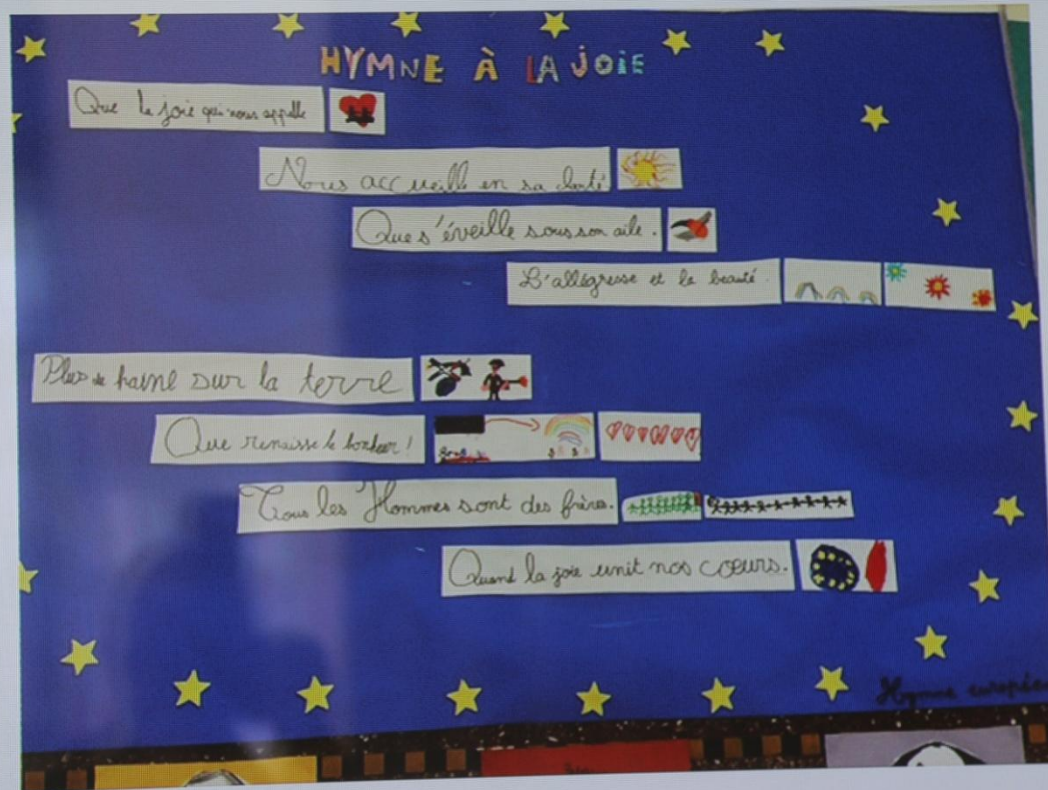 HYMNE À LA JOIE
Que la joie qui nous appelle
Nous accueille en sa clarté
Que s'éveille sous son aile.
L'allégresse et la beauté.
Plus de haine sur la terre
Que renaisse le bonheur!
Tous les Hommes sont des frères.
Quand la joie unit nos cœurs.
Hymne européen